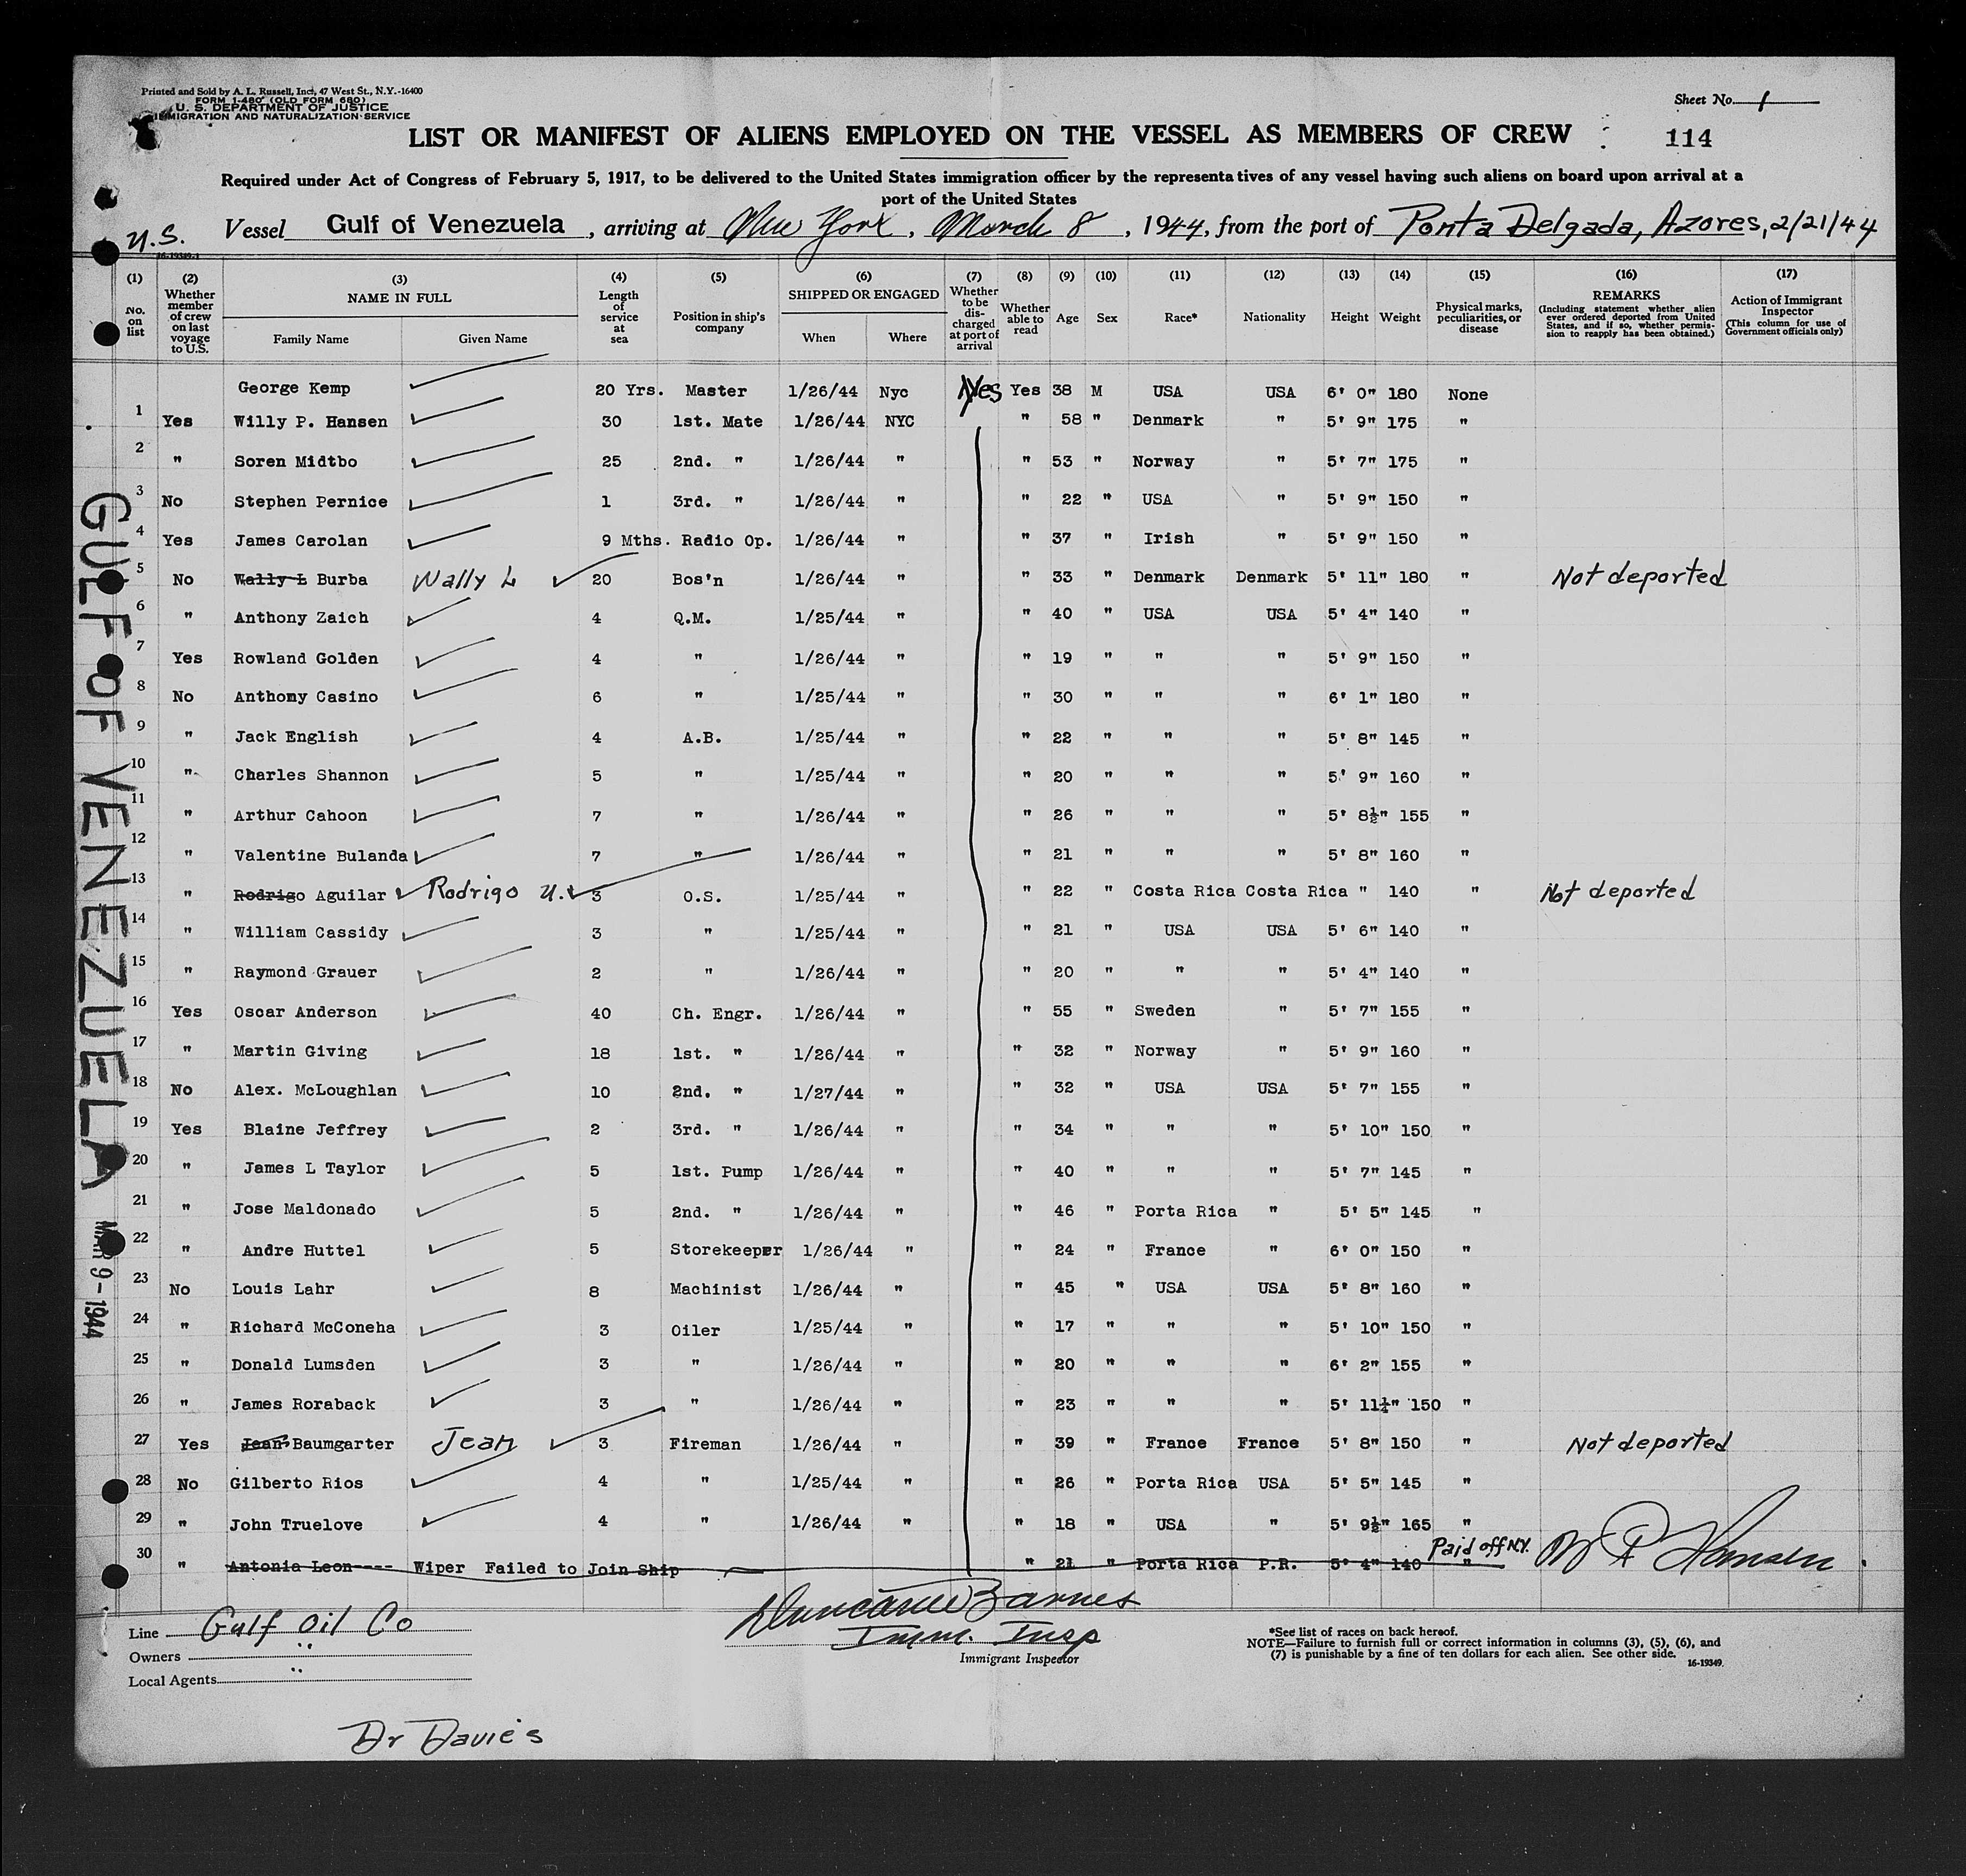 Printed and Sold by A. L. Russell, Inc., 47 West St., N.Y.-16400
FORM I-480 (OLD FORM 680)
U. S. DEPARTMENT OF JUSTICE
IMMIGRATION AND NATURALIZATION SERVICE
Sheet No. 1
LIST OR MANIFEST OF ALIENS EMPLOYED ON THE VESSEL AS MEMBERS OF CREW
114
Required under Act of Congress of February 5, 1917, to be delivered to the United States immigration officer by the representatives of any vessel having such aliens on board upon arrival at a
port of the United States
U.S. Vessel Gulf of Venezuela, arriving at New York, March 8, 1944, from the port of Ponta Delgada, Azores, 2/21/44
16-19349-1
(1) No. on list
(2) Whether member of crew on last voyage to U.S.
(3) NAME IN FULL Family Name Given Name
(4) Length of service at sea
(5) Position in ship's company
(6) SHIPPED OR ENGAGED When Where
(7) Whether to be discharged at port of arrival
(8) Whether able to read
(9) Age
(10) Sex
(11) Race*
(12) Nationality
(13) Height
(14) Weight
(15) Physical marks, peculiarities, or disease
(16) REMARKS (Including statement whether alien ever ordered deported from United States, and if so, whether permission to reapply has been obtained.)
(17) Action of Immigrant Inspector (This column for use of Government officials only)
George Kemp 20 Yrs. Master 1/26/44 Nyc Yes Yes 38 M USA USA 6' 0" 180 None
1 Yes Willy P. Hansen 30 1st. Mate 1/26/44 NYC " 58 " Denmark " 5' 9" 175 "
2 " Soren Midtbo 25 2nd. " 1/26/44 " " 53 " Norway " 5' 7" 175 "
3 No Stephen Pernice 1 3rd. " 1/26/44 " " 22 " USA " 5' 9" 150 "
4 Yes James Carolan 9 Mths. Radio Op. 1/26/44 " " 37 " Irish " 5' 9" 150 "
5 No Wally L Burba Wally L 20 Bos'n 1/26/44 " " 33 " Denmark Denmark 5' 11" 180 " Not deported
6 " Anthony Zaich 4 Q.M. 1/25/44 " " 40 " USA USA 5' 4" 140 "
7 Yes Rowland Golden 4 " 1/26/44 " " 19 " " " 5' 9" 150 "
8 No Anthony Casino 6 " 1/25/44 " " 30 " " " 6' 1" 180 "
9 " Jack English 4 A.B. 1/25/44 " " 22 " " " 5' 8" 145 "
10 " Charles Shannon 5 " 1/25/44 " " 20 " " " 5' 9" 160 "
11 " Arthur Cahoon 7 " 1/26/44 " " 26 " " " 5' 8½" 155 "
12 " Valentine Bulanda 7 " 1/26/44 " " 21 " " " 5' 8" 160 "
13 " Rodrigo Aguilar Rodrigo U. 3 O.S. 1/25/44 " " 22 " Costa Rica Costa Rica " 140 " Not deported
14 " William Cassidy 3 " 1/25/44 " " 21 " USA USA 5' 6" 140 "
15 " Raymond Grauer 2 " 1/26/44 " " 20 " " " 5' 4" 140 "
16 Yes Oscar Anderson 40 Ch. Engr. 1/26/44 " " 55 " Sweden " 5' 7" 155 "
17 " Martin Giving 18 1st. " 1/26/44 " " 32 " Norway " 5' 9" 160 "
18 No Alex. McLoughlan 10 2nd. " 1/27/44 " " 32 " USA USA 5' 7" 155 "
19 Yes Blaine Jeffrey 2 3rd. " 1/26/44 " " 34 " " " 5' 10" 150 "
20 " James L Taylor 5 1st. Pump 1/26/44 " " 40 " " " 5' 7" 145 "
21 " Jose Maldonado 5 2nd. " 1/26/44 " " 46 " Porta Rica " 5' 5" 145 "
22 " Andre Huttel 5 Storekeeper 1/26/44 " " 24 " France " 6' 0" 150 "
23 No Louis Lahr 8 Machinist 1/26/44 " " 45 " USA USA 5' 8" 160 "
24 " Richard McConeha 3 Oiler 1/25/44 " " 17 " " " 5' 10" 150 "
25 " Donald Lumsden 3 " 1/26/44 " " 20 " " " 6' 2" 155 "
26 " James Roraback 3 " 1/26/44 " " 23 " " " 5' 11¼" 150 "
27 Yes Jean Baumgarter Jean 3 Fireman 1/26/44 " " 39 " France France 5' 8" 150 " Not deported
28 No Gilberto Rios 4 " 1/25/44 " " 26 " Porta Rica USA 5' 5" 145 "
29 " John Truelove 4 " 1/26/44 " " 18 " USA " 5' 9½" 165 "
30 " Antonia Leon---- Wiper Failed to Join Ship " 21 " Porta Rica P.R. 5' 4" 140 " Paid off N.Y. W P Hansen
GULF OF VENEZUELA
MAR 9-1944
Line Gulf Oil Co
Owners "
Local Agents "
Barnes
Imm. Insp
Immigrant Inspector
*See list of races on back hereof.
NOTE—Failure to furnish full or correct information in columns (3), (5), (6), and
(7) is punishable by a fine of ten dollars for each alien. See other side.
16-19349
Dr Davies